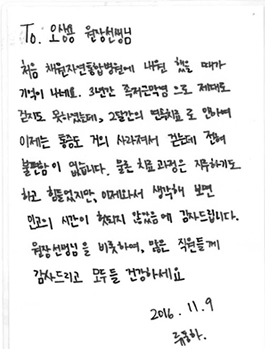 To. 오상용 원장선생님
처음 채원자연통합병원에 내원 했을 때가
기억이 나네요. 3년간 족저근막염 으로 제대로
걷지도 못하였는데, 2달간의 면역치료 로 인하여
이제는 통증도 거의 사라져서 걷는데 전혀
불편함이 없습니다. 물론 치료 과정은 지루하기도
하고 힘들었지만, 이제와서 생각해 보면
인고의 시간이 헛되지 않았음 에 감사드립니다.
원장선생님 을 비롯하여, 많은 직원들께
감사드리고 모두들 건강하세요
2016. 11. 9
류동하.